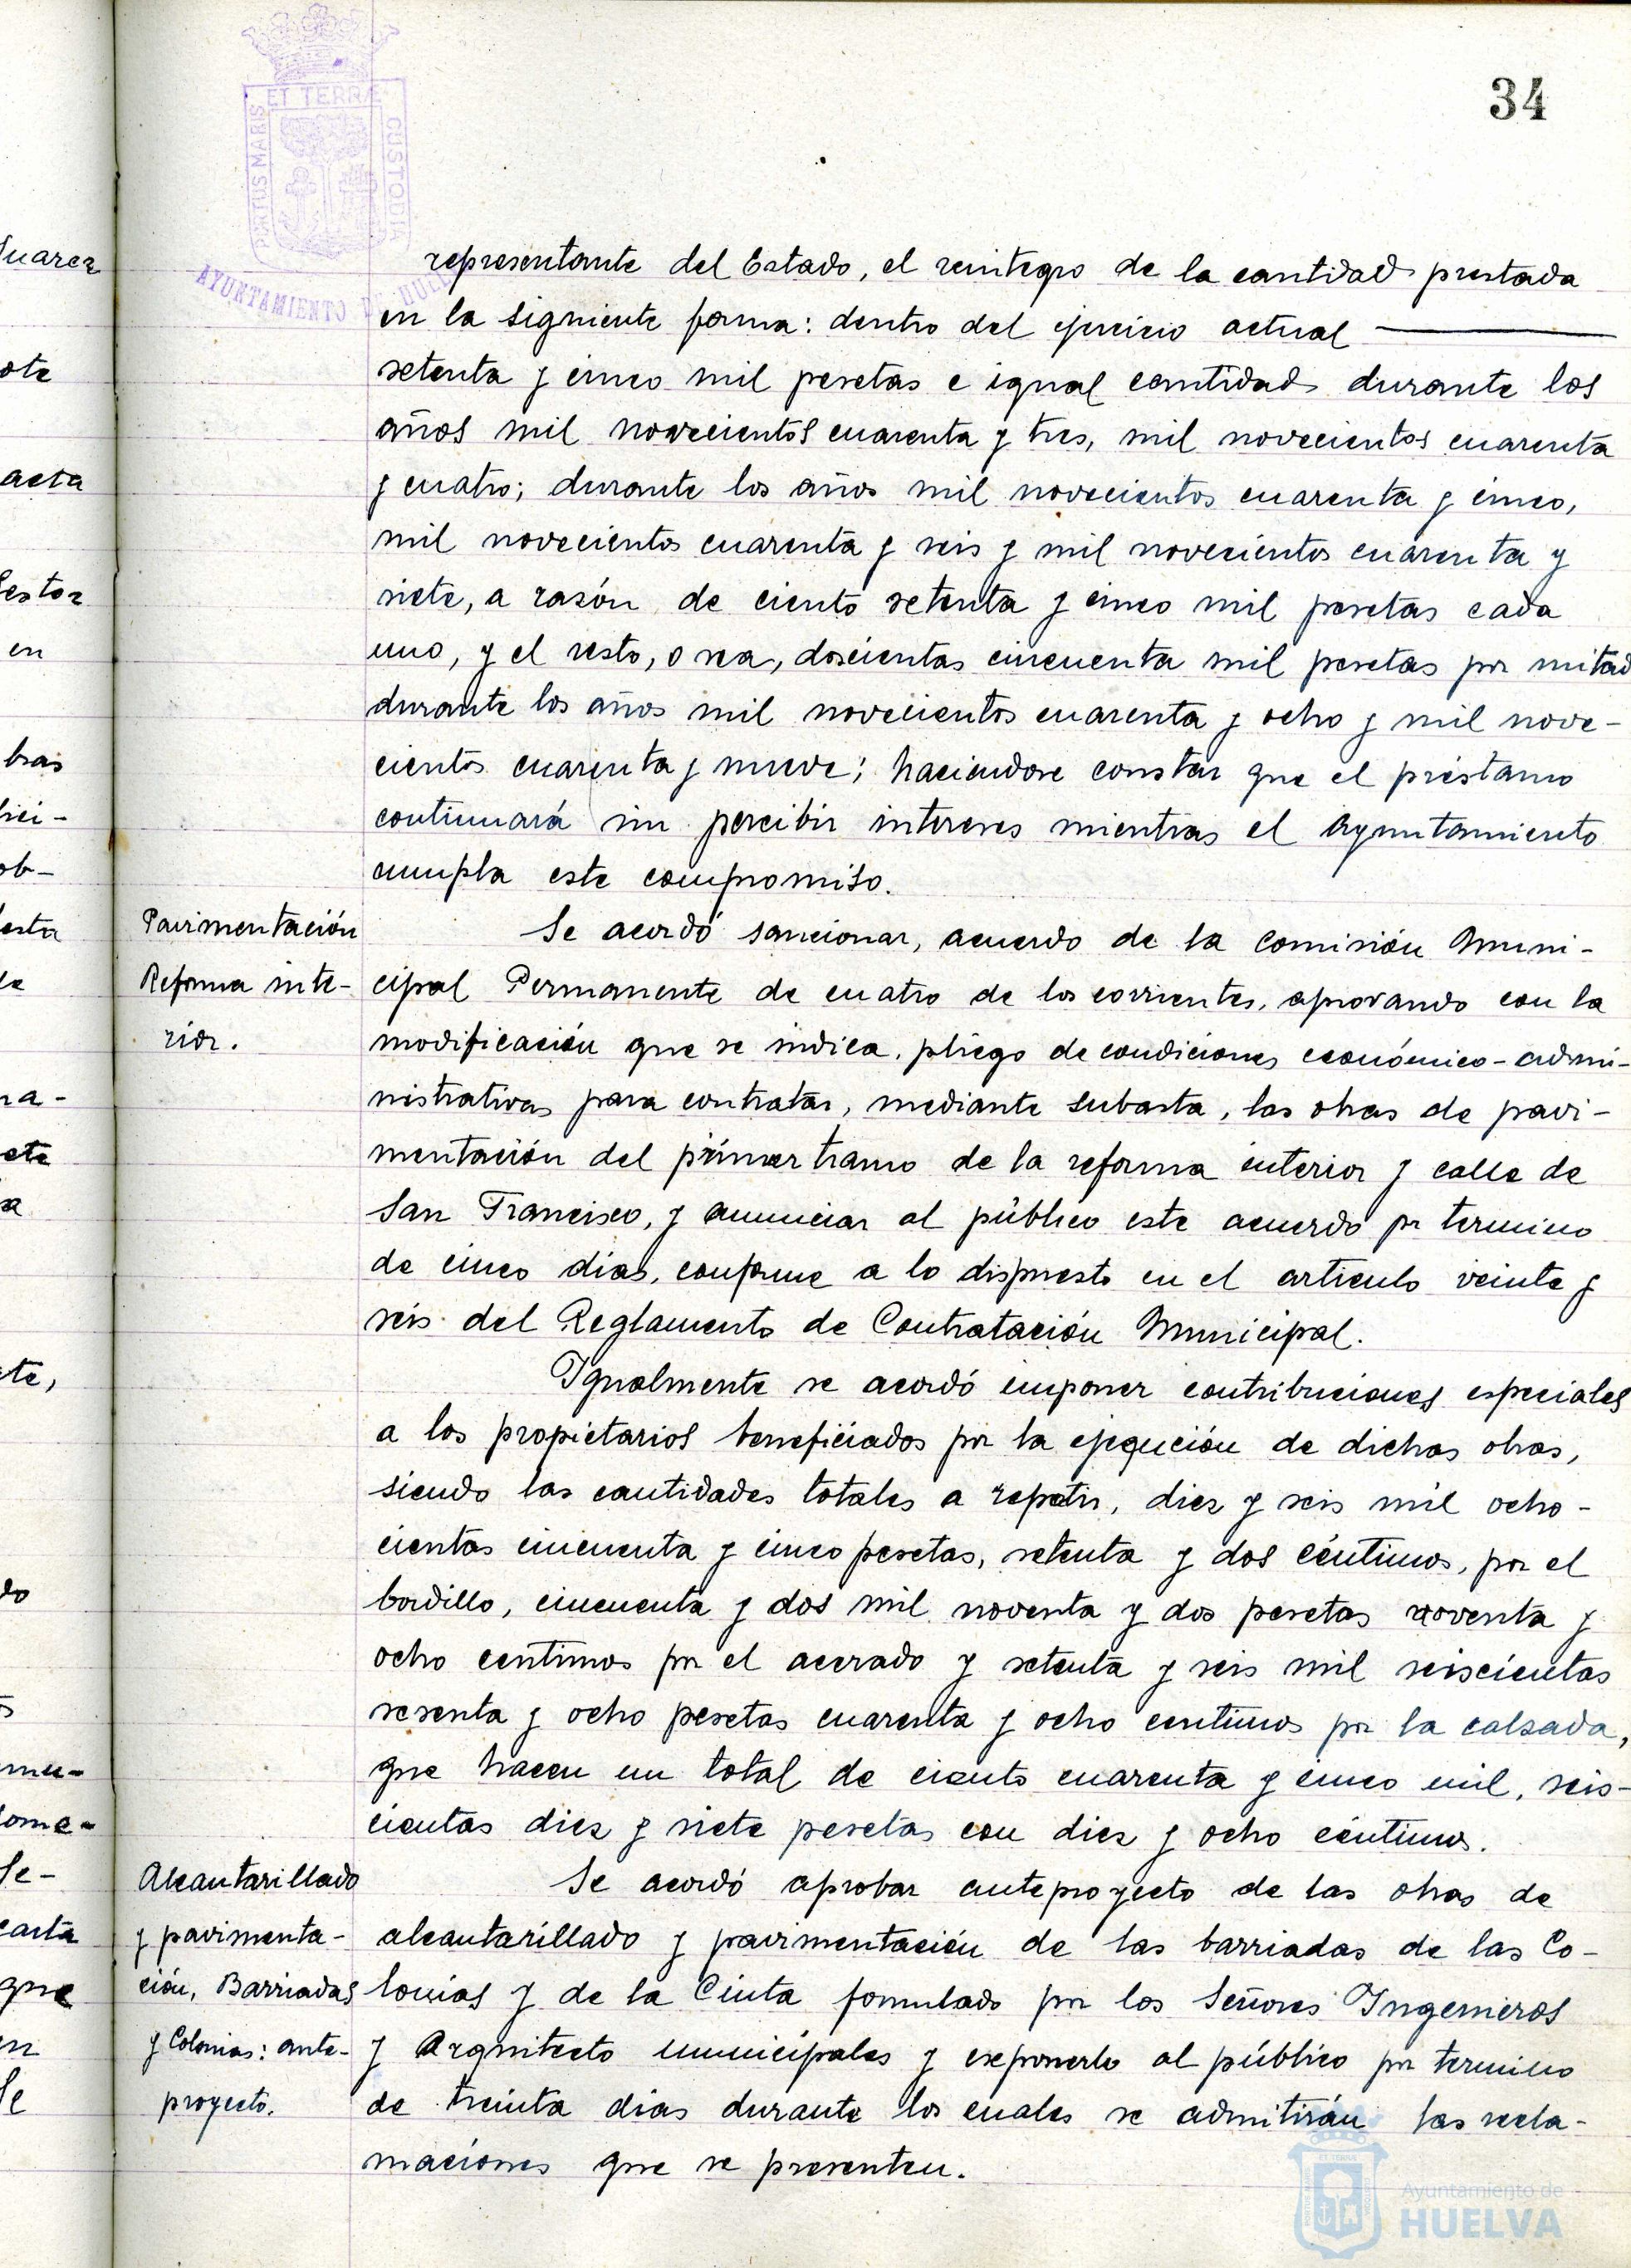 34
PORTUS MARIS ET TERRÆ CUSTODIA
AYUNTAMIENTO DE HUELVA
representante del Estado, el reintegro de la cantidad prestada
en la siguiente forma: dentro del ejercicio actual ———
setenta y cinco mil pesetas e igual cantidad durante los
años mil novecientos cuarenta y tres, mil novecientos cuarenta
y cuatro; durante los años mil novecientos cuarenta y cinco,
mil novecientos cuarenta y seis y mil novecientos cuarenta y
siete, a razón de ciento setenta y cinco mil pesetas cada
uno, y el resto, o sea, doscientas cincuenta mil pesetas por mitad
durante los años mil novecientos cuarenta y ocho y mil nove-
cientos cuarenta y nueve; haciendose constar que el préstamo
continuará sin percibir intereses mientras el Ayuntamiento
cumpla este compromiso.
Pavimentación
Reforma inte-
rior.
Se acordó sancionar, acuerdo de la Comisión Muni-
cipal Permanente de cuatro de los corrientes, aprovando con la
modificación que se indica, pliego de condiciones económico-admi-
nistrativas para contratar, mediante subasta, las obras de pavi-
mentación del primer tramo de la reforma interior y calle de
San Francisco, y anunciar al público este acuerdo pr termino
de cinco dias, conforme a lo dispuesto en el articulo veinte y
seis del Reglamento de Contratación Municipal.
Igualmente se acordó imponer contribuciones especiales
a los propietarios beneficiados por la ejecución de dichas obras,
siendo las cantidades totales a repatir, diez y seis mil ocho-
cientas cincuenta y cinco pesetas, setenta y dos céntimos, por el
bordillo, cincuenta y dos mil noventa y dos pesetas noventa y
ocho centimos por el acerado y setenta y seis mil seiscientas
sesenta y ocho pesetas cuarenta y ocho centimos por la calzada,
que hacen un total de ciento cuarenta y cinco mil, seis-
cientas diez y siete pesetas con diez y ocho céntimos.
Alcantarillado
y pavimenta-
ción, Barriadas
y Colonias: ante-
proyecto.
Se acordó aprobar anteproyecto de las obras de
alcantarillado y pavimentación de las barriadas de las Co-
lonias y de la Cinta fomulado por los Señores Ingenieros
y Arquitecto municipales y exponerlo al público por termino
de treinta dias durante los cuales se admitirán las recla-
maciones que se presenten.
Suarez
ote
acta
Gestor
en
bras
ob-
esta
na-
ete
te,
do
ome-
Se-
carta
que
Ayuntamiento de
HUELVA